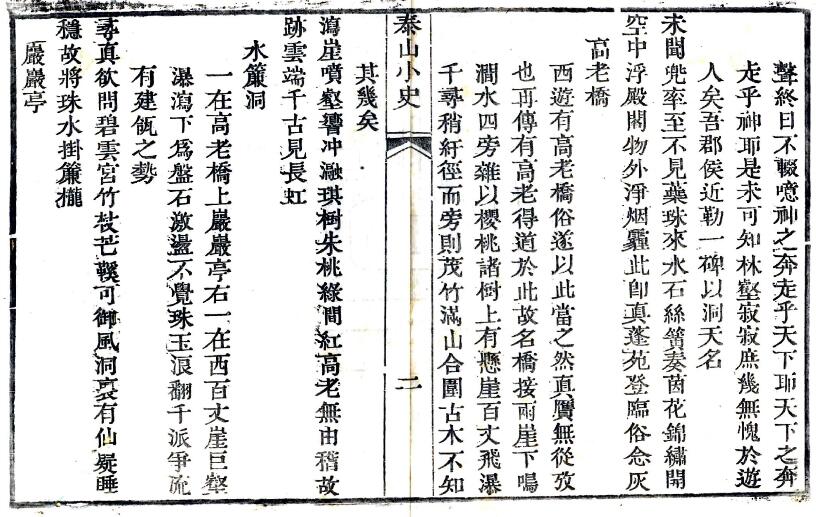 聲終日不輟噫神之奔走乎天下耶天下之奔
走乎神耶是未可知林壑寂寂庶幾無愧於遊
人矣吾郡侯近勒一碑以洞天名
未聞兜率至不見蘂珠來水石絲簧奏茵花錦繡開
空中浮殿閣物外淨烟霾此卽真蓬苑登臨俗念灰
高老橋
西遊有高老橋俗遂以此當之然真贗無從攷
也再傳有高老得道於此故名橋接兩崖下鳴
澗水四旁雜以櫻桃諸樹上有懸崖百丈飛瀑
千尋稍紆徑而旁則茂竹滿山合圍古木不知
泰山小史
二
其幾矣
瀉崖噴壑響冲瀜琪樹朱桃綠間紅高老無由稽故
跡雲端千古見長虹
水簾洞
一在高老橋上巖巖亭右一在西百丈崖巨壑
瀑瀉下爲盤石激盪不覺珠玉浪翻千派爭流
有建瓴之勢
尋真欲問碧雲宮竹杖芒鞵可御風洞裏有仙疑睡
穩故將珠水掛簾櫳
巖巖亭